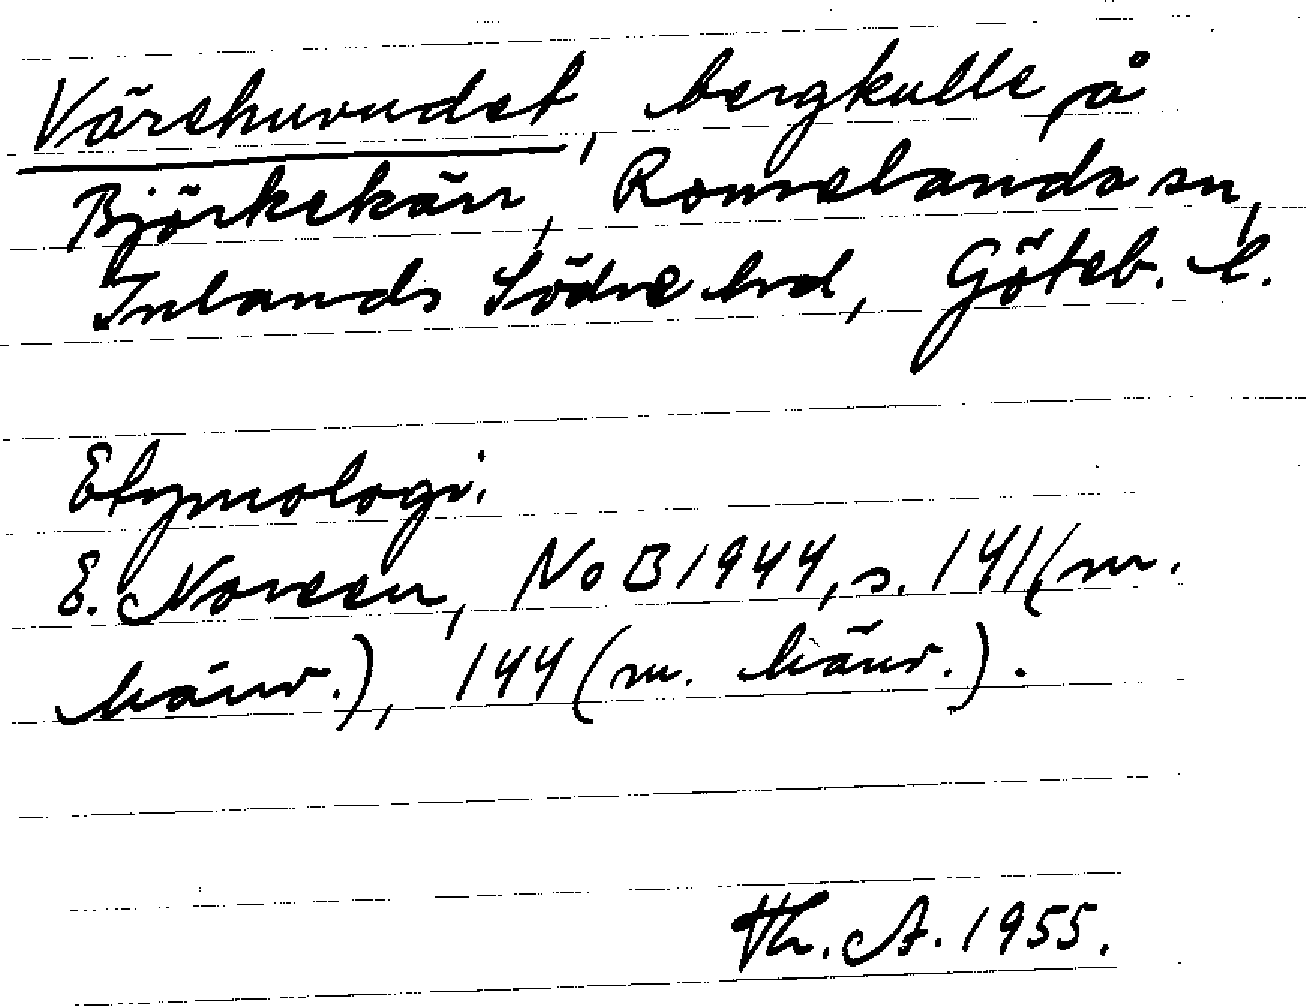 Värehuvudet, bergkulle på
Björkekärr, Romelanda sn,
Inlands Södre hrd, Göteb. l.
Etymologi.
E. Noreen, NoB 1944, s. 141 (m.
hänv.), 144 (m. hänv.).
Th. A. 1955.